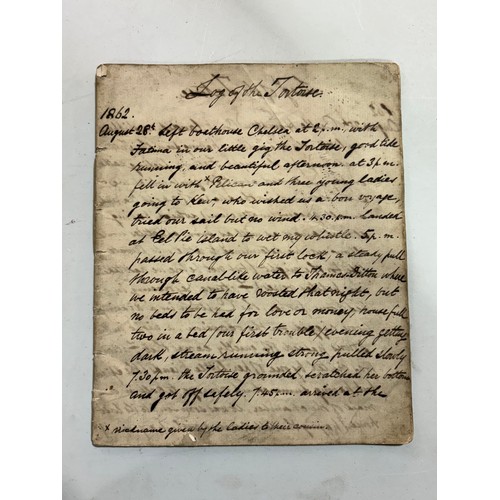 Log of the Tortoise.
1862.
August 28th Left boathouse Chelsea at 2 p.m. with
Fatima in our little gig the Tortoise, good tide
running, and beautiful afternoon. at 3 p.m.
fell in with Pelican and three young ladies
going to Kew, who wished us a bon voyage,
tried our sail but no wind. 4.30. p.m. Landed
at Eel Pie island to wet my whistle. 5 p.m.
passed through our first lock; a steady pull
through canal-like water to Thames Ditton where
we intended to have roosted that night, but
no beds to be had for love or money, house full
two in a bed (our first trouble) evening getting
dark, stream running strong, pulled slowly
7.30 p.m. the Tortoise grounded, scratched her bottom
and got off safely. 7.45 p.m. arrived at the
x nickname given by the ladies to their